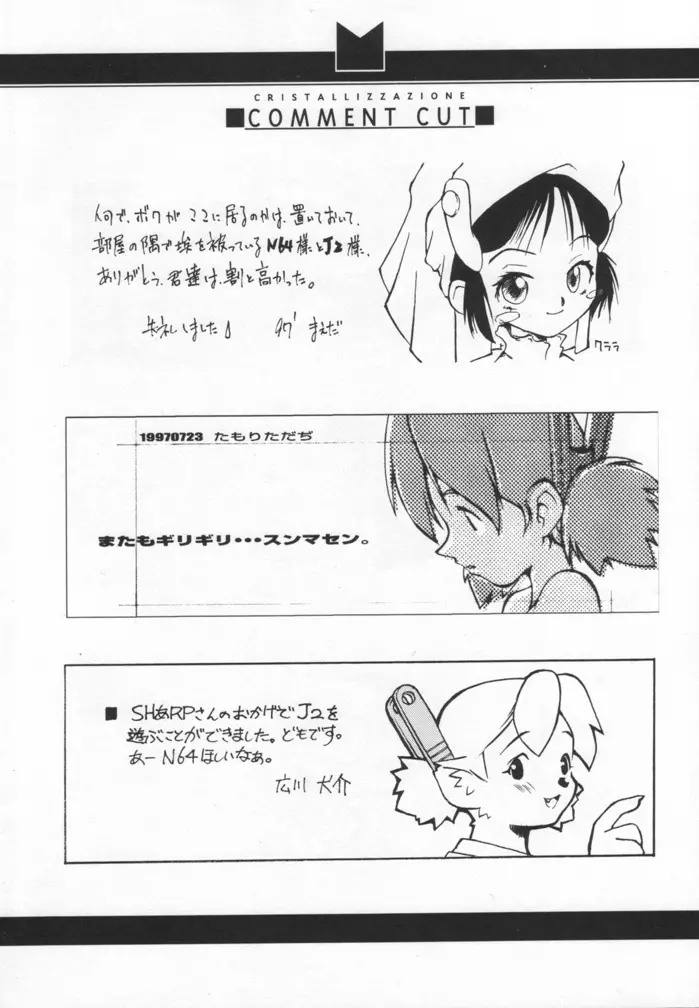 CRISTALLIZZAZIONE
■COMMENT CUT■
何で、ボクがここに居るのかは、置いておいて、
部屋の隅で埃を被っているN64様とJ2様、
ありがとう、君達は、割と高かった。
失礼しました♪ 97' まえだ
クララ
19970723 たもりただぢ
またもギリギリ・・・スンマセン。
■ SHあRPさんのおかげでJ2を
遊ぶことができました。どもです。
あーN64ほしいなぁ。
広川 大介